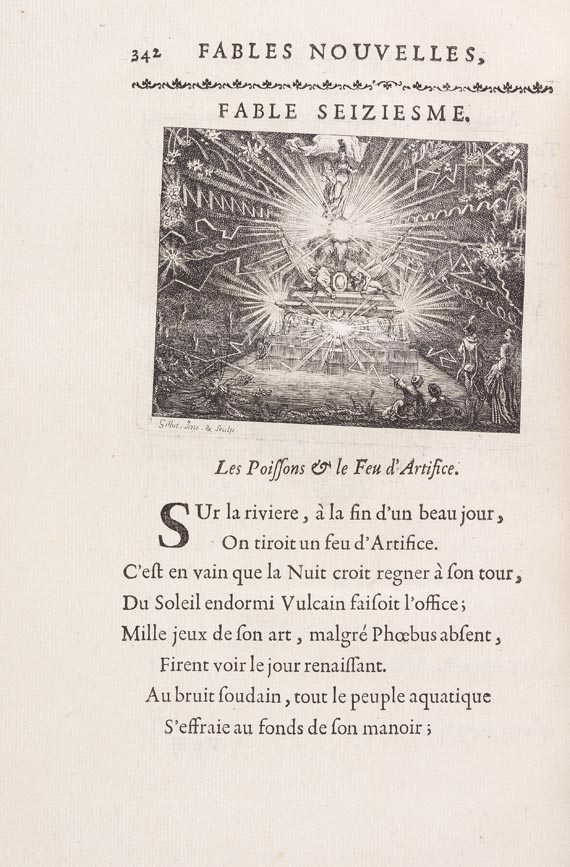 342 FABLES NOUVELLES,
FABLE SEIZIESME.
Gillot. Inv. & Sculp.
Les Poiſſons & le Feu d'Artifice.
SUr la riviere, à la fin d'un beau jour,
On tiroit un feu d'Artifice.
C'eſt en vain que la Nuit croit regner à ſon tour,
Du Soleil endormi Vulcain faiſoit l'office;
Mille jeux de ſon art, malgré Phœbus abſent,
Firent voir le jour renaiſſant.
Au bruit ſoudain, tout le peuple aquatique
S'effraie au fonds de ſon manoir;